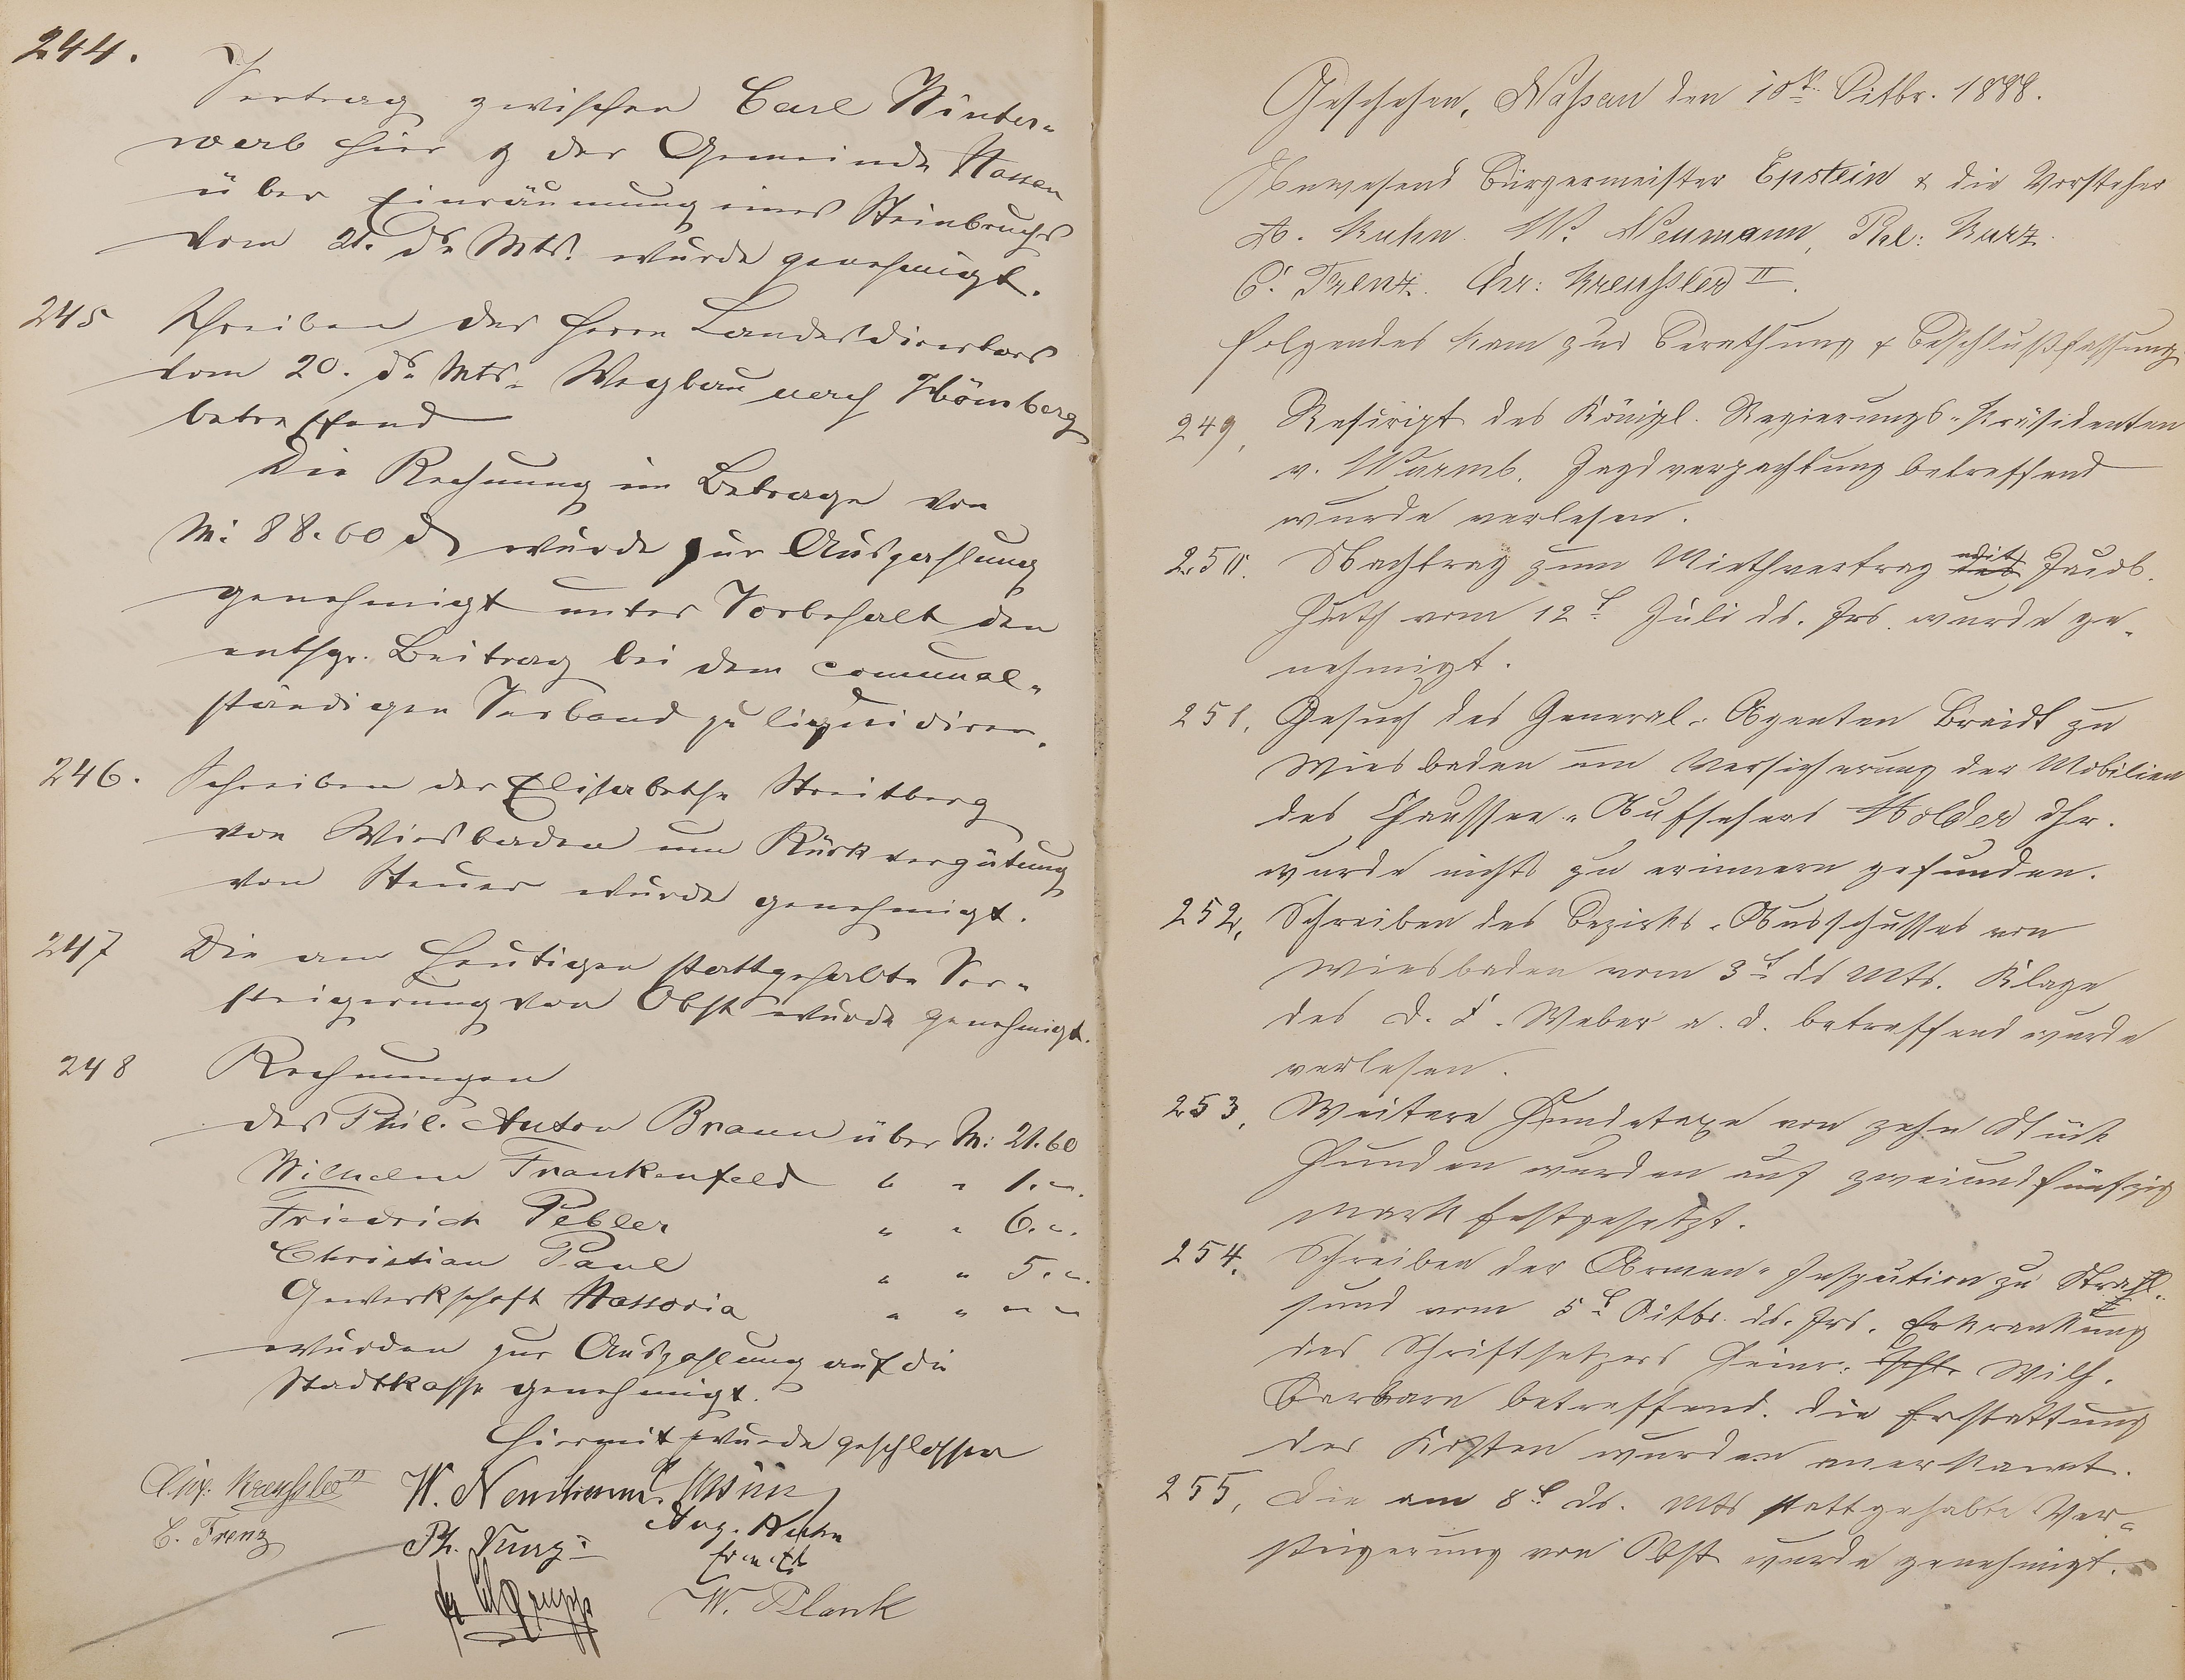 244.
Vertrag zwischen Carl Winter-
werb hier & der Gemeinde Nassau
über Einräumung eines Steinbruchs
vom 21. ds. Mts. wurde genehmigt.
245 Schreiben des Herrn Landesdirectors
vom 20. ds. Mts. Wegbau nach Hömberg
betreffend
Die Rechnung im Betrage von
M: 88.60 d wurde zur Auszahlung
genehmigt unter Vorbehalt den
entspr. Beitrag bei dem communal-
ständigen Verband zu liquidiren.
246. Schreiben der Elisabethe Streitberg
von Wiesbaden um Rückvergütung
von Steuer wurde genehmigt.
247 Die am Heutigen stattgehabte Ver-
steigerung von Obst wurde genehmigt.
248 Rechnungen
des Phil. Anton Braun über M: 21.60
Wilhelm Frankenfeld " " 1.-.
Friedrich Pebler " " 6.-.
Christian Paul " " 5.-.
Gewerkschaft Nassovia " " - -
wurden zur Auszahlung auf die
Stadtkasse genehmigt.
Hiermit wurde geschlossen
Chr: Kreußler II W. Neumann
C. Frenz Ph. Kurz Aug. Kuhn
W. Plank
Geschehen, Nassau den 10t. Octbr. 1888.
Anwesend Bürgermeister Epstein & die Vorsteher
A. Kuhn. W. Neumann, Phl: Kurz.
C. Frenz. Chr: Kreußler II.
Folgendes kam zur Berathung & Beschlußfassung
249, Rescript des Königl. Regierungs-Präsidenten
v. Wurmb. Jagdverpachtung betreffend
wurde verlesen.
250. Nachtrag zum Miethvertrag mit Jacob
vom 12t Juli ds. Jrs. wurde ge-
nehmigt.
251, Gesuch des General-Agenten Breidt zu
Wiesbaden um Versicherung der Mobilien
des Chaussee-Aufsehers Molder dhr.
wurde nichts zu erinnern gefunden.
252, Schreiben des Bezirks-Ausschusses von
Wiesbaden vom 3t ds Mts. Klage
des D. L. Weber a. d. betreffend wurde
verlesen.
253, Weitere Hundetaxe von zehn Stück
Hunden wurden auf zweiundfünfzig
Mark festgesetzt.
254. Schreiben der Armen-Inspection zu Stral-
sund vom 5t Octbr. ds. Jrs. Erkrankung
des Schriftsetzers Heinr: Wilh.
Barbara betreffend. Die Erstattung
der Kosten wurden anerkannt.
255, Die am 8t ds. Mts stattgehabte Ver-
steigerung von Obst wurde genehmigt.